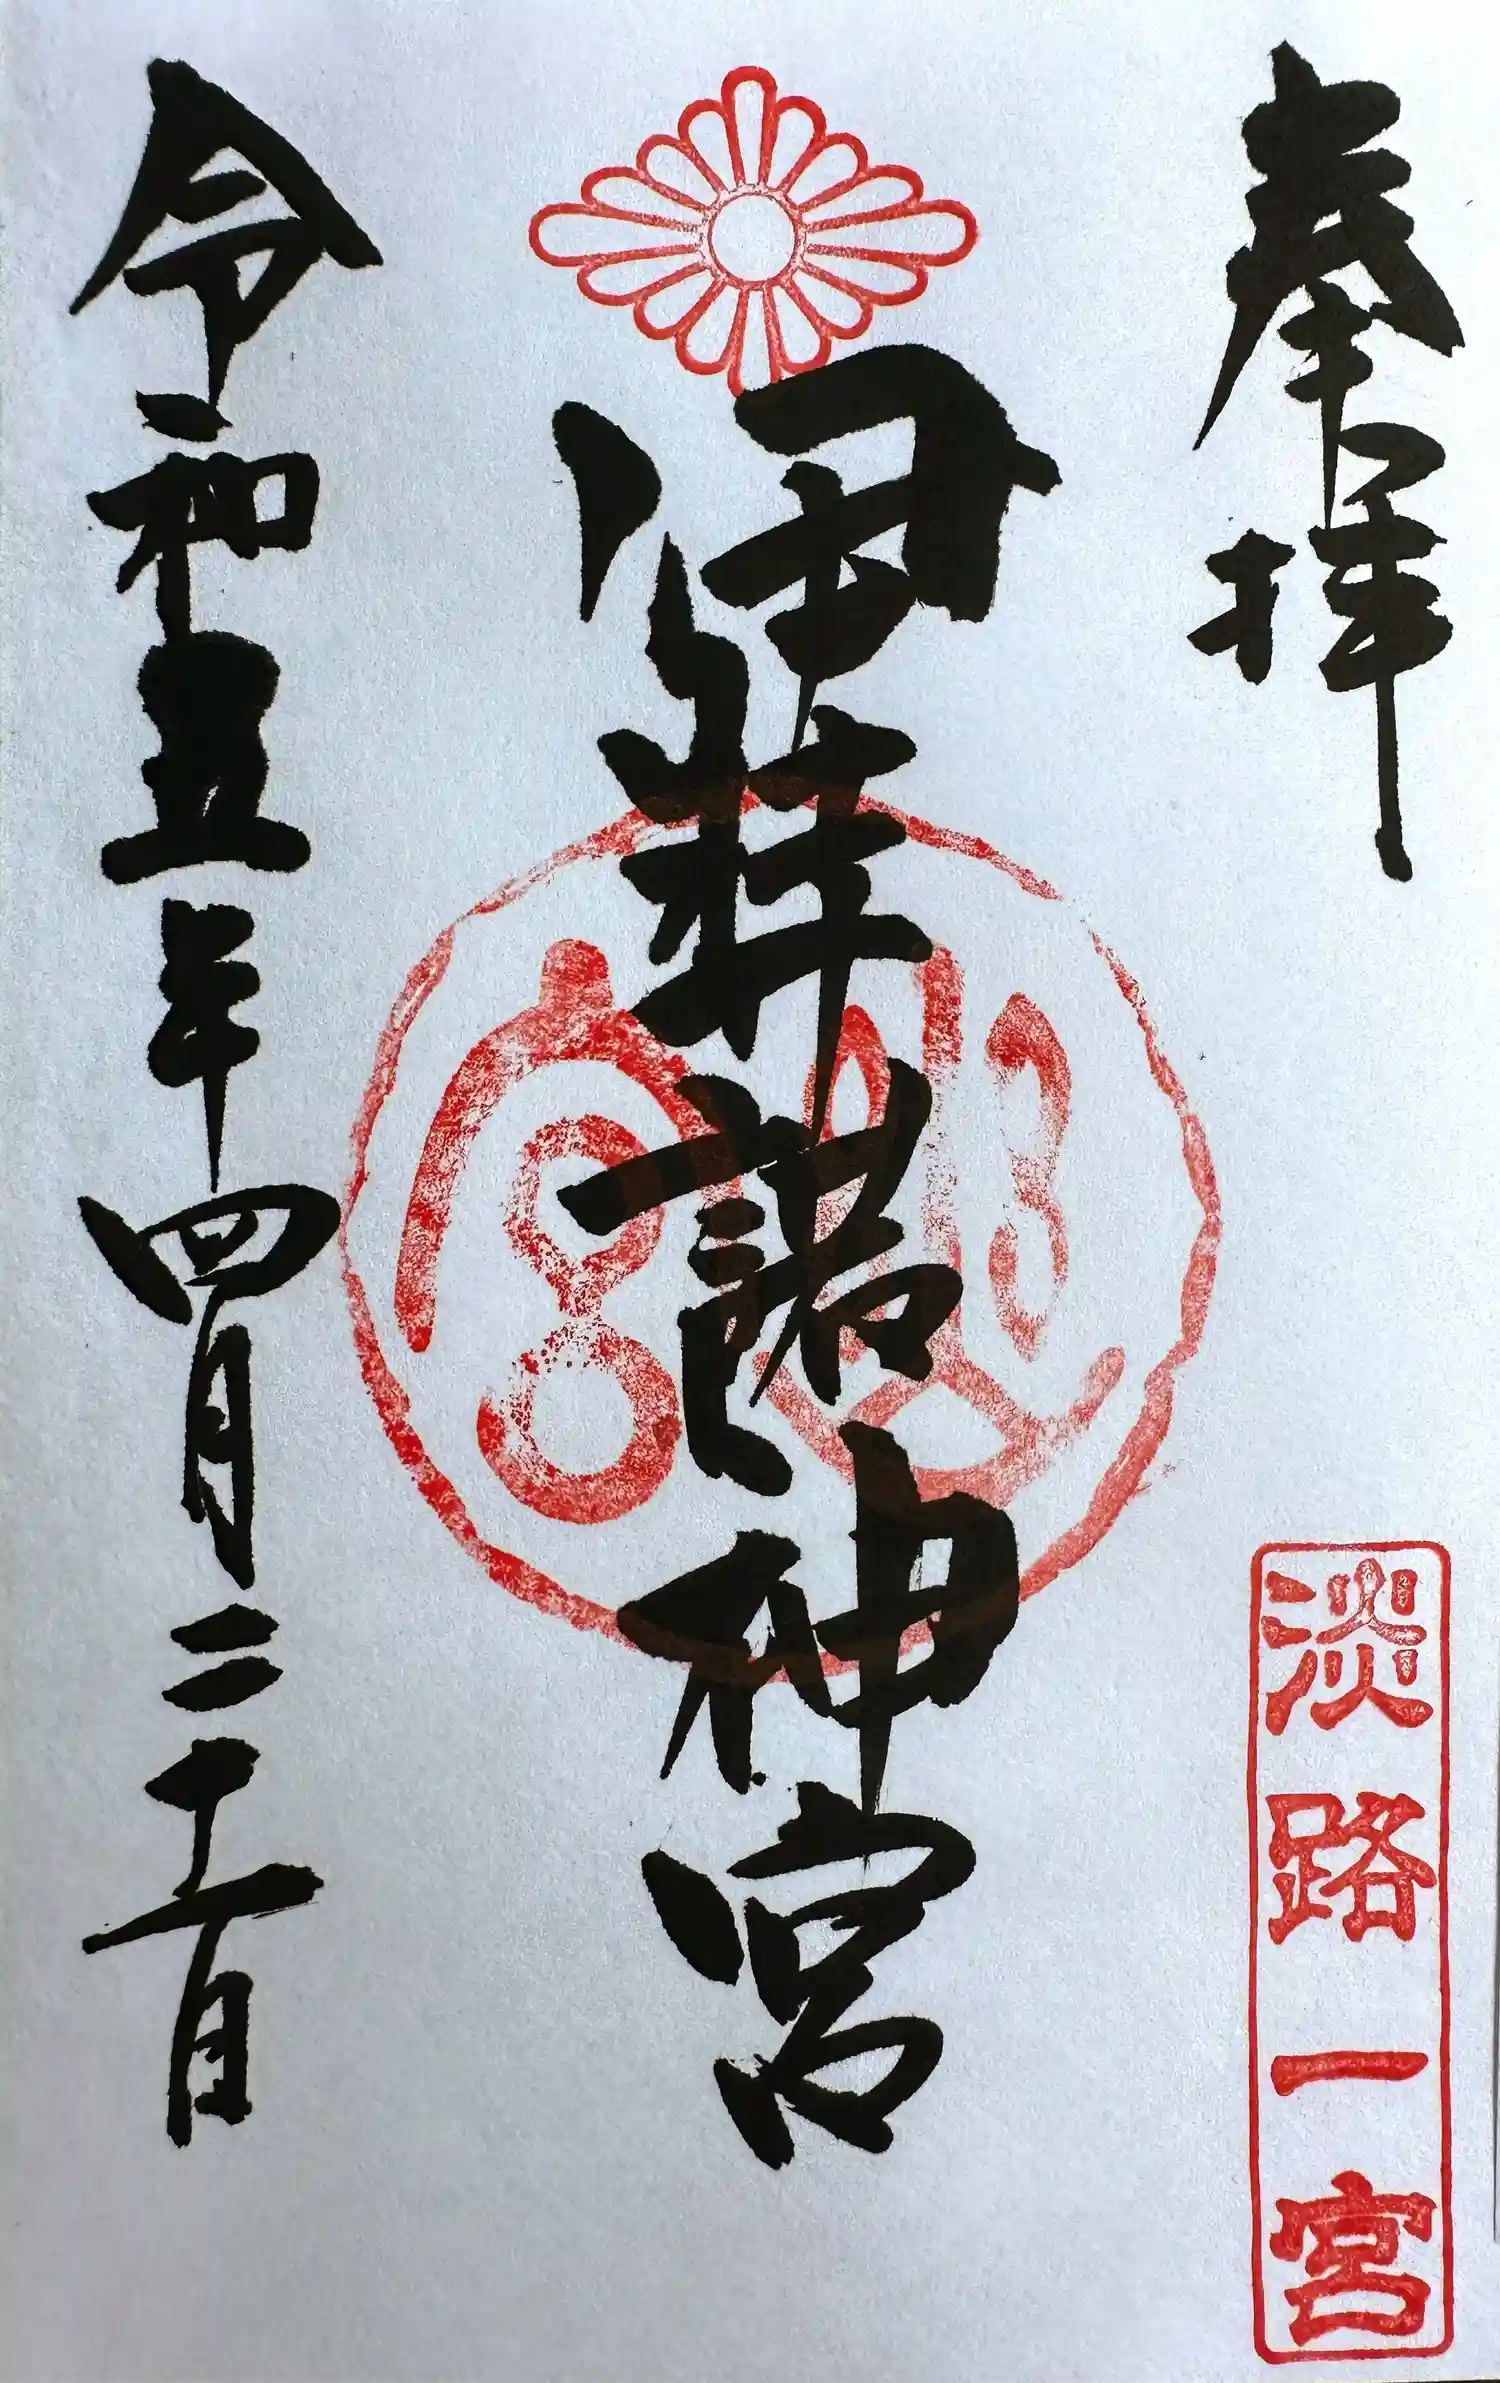 奉拝
淡路一宮
伊弉諾神宮
神宮
令和五年四月二十一日